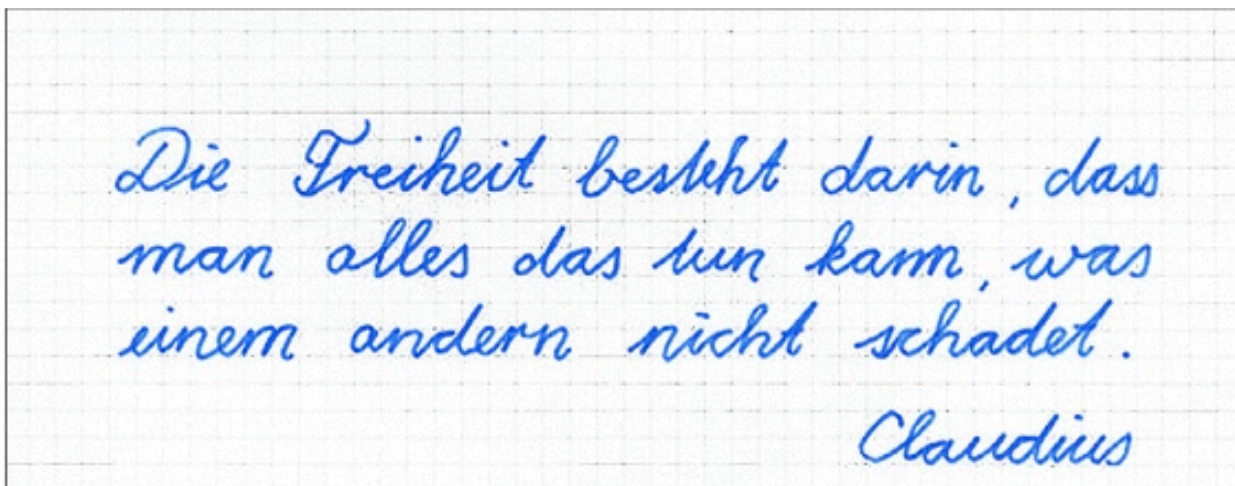 Die Freiheit besteht darin, dass
man alles das tun kann, was
einem andern nicht schadet.
Claudius